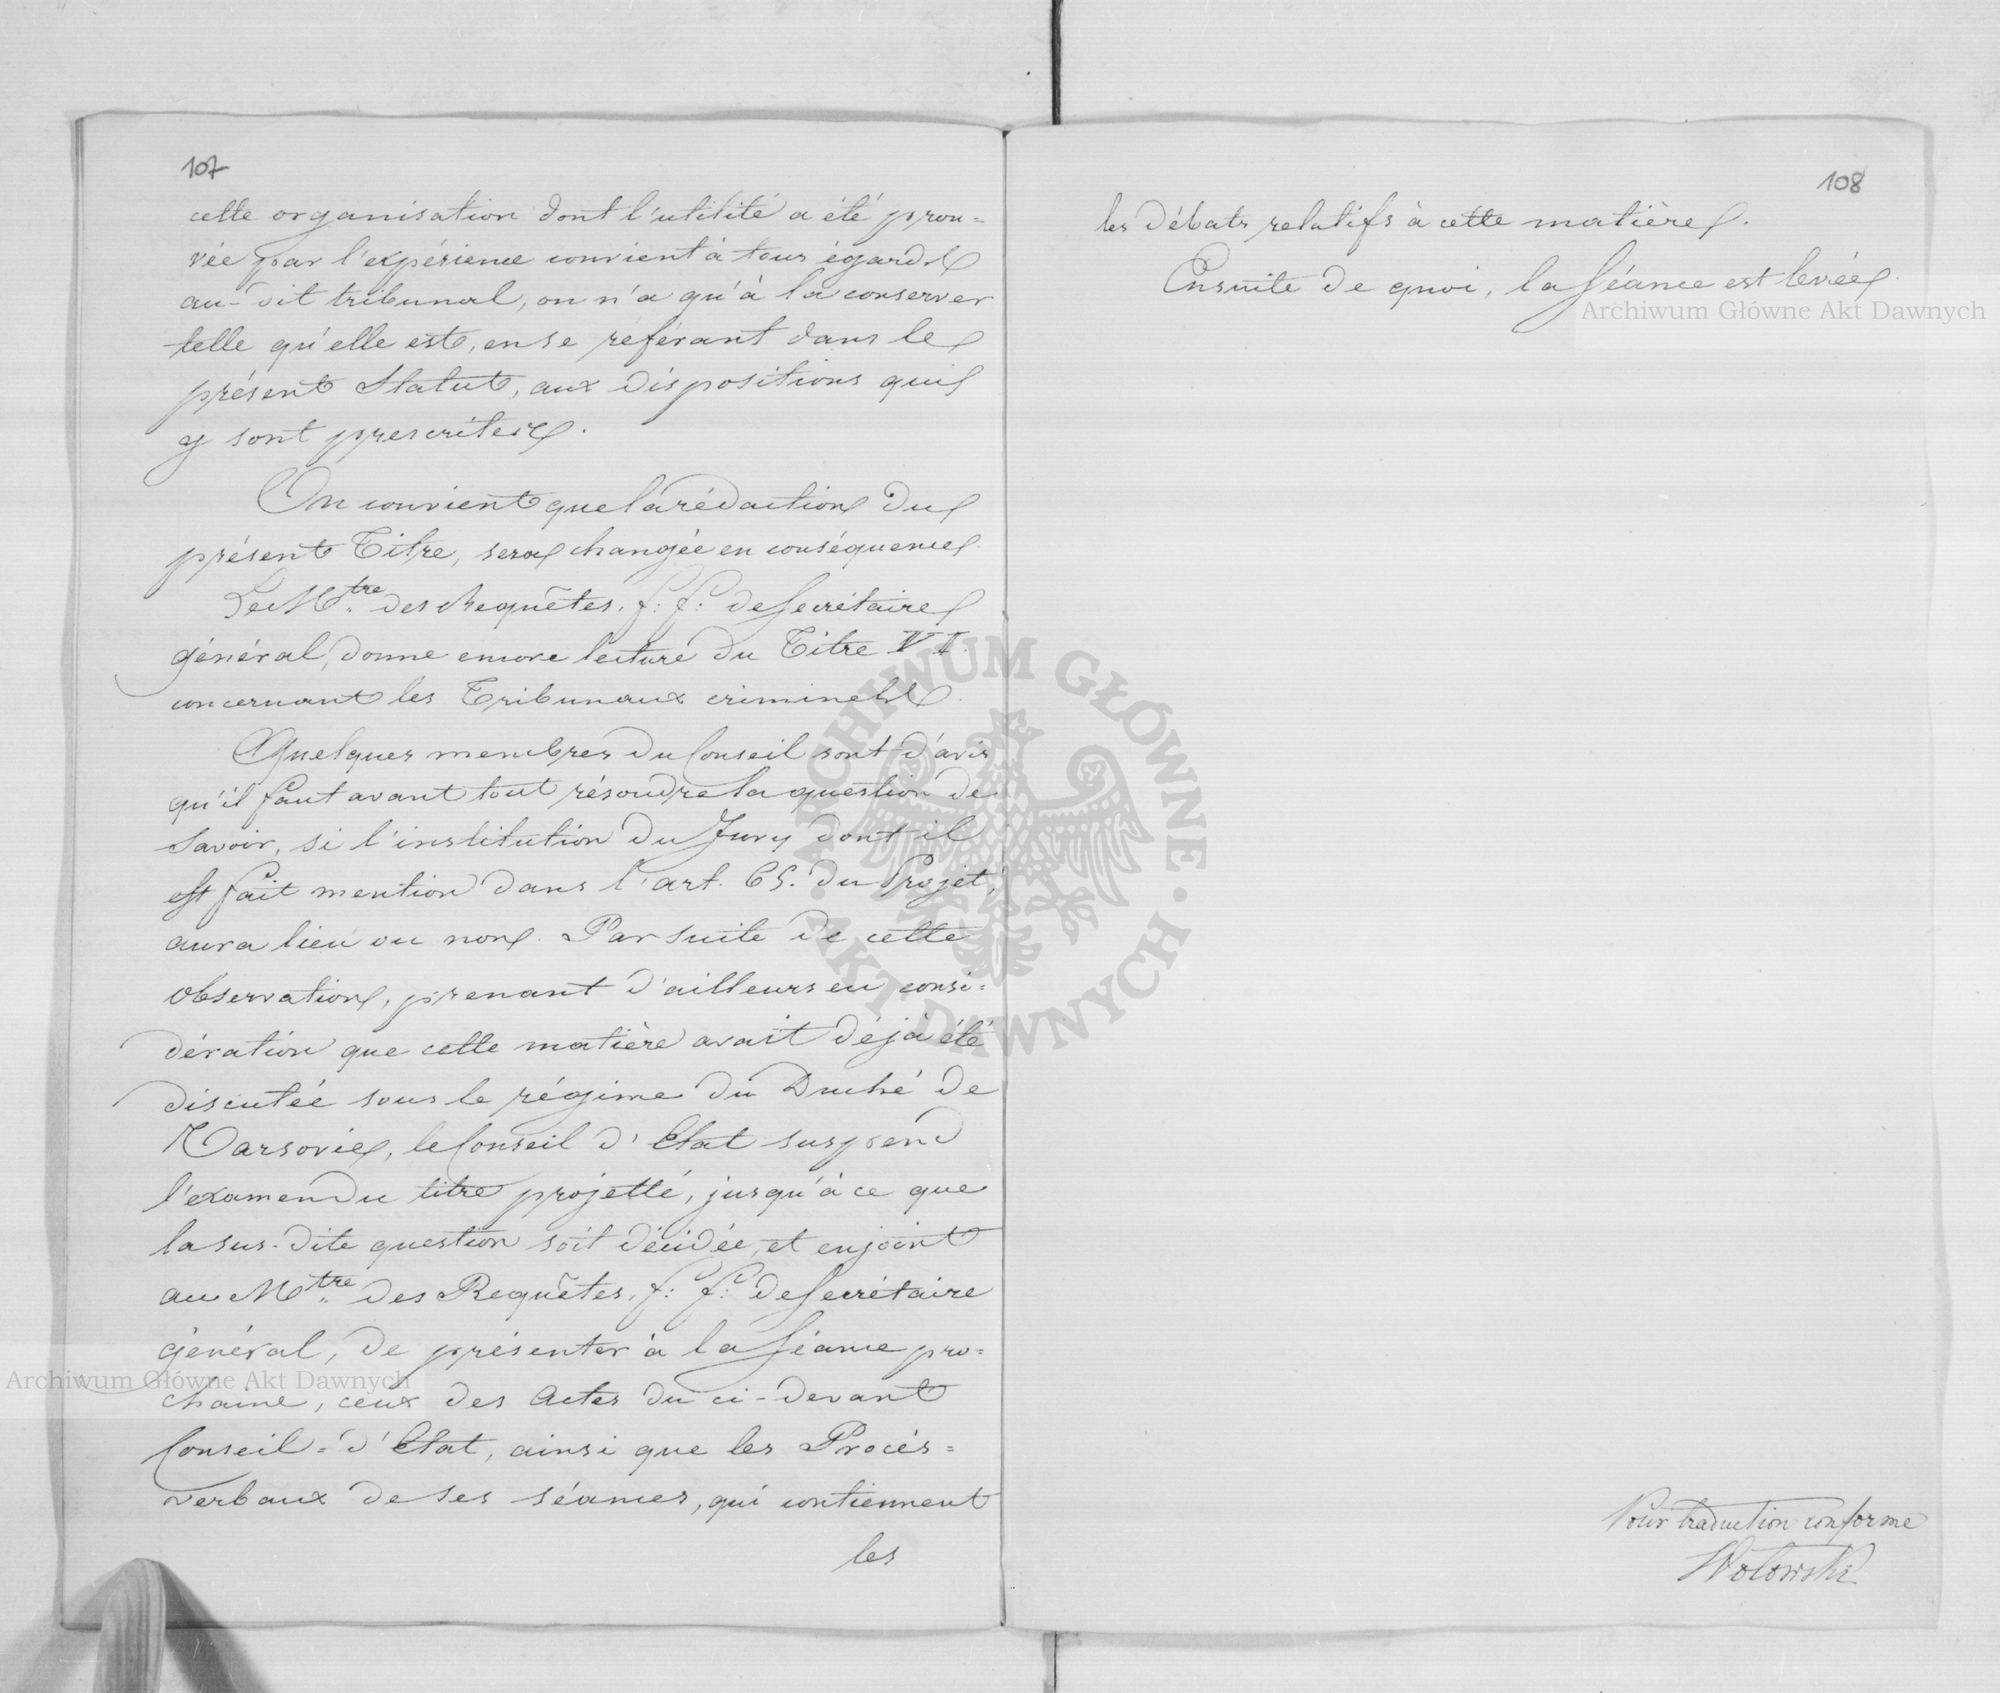 107
cette organisation dont l'utilité a été prou=
vée par l'expérience convient à tous égards
au-dit tribunal, on n'a qu'à la conserver
telle qu'elle est, en se référant dans le
présent Statut, aux dispositions qui
y sont prescrites.
On convient que la rédaction du
présent Titre, sera changée en conséquence.
Le Mtre des Requêtes, f: f: de Secrétaire
général, donne encore lecture du Titre VI.
concernant les Tribunaux criminels.
Quelques membres du Conseil sont d'avis
qu'il faut avant tout résoudre la question de
savoir, si l'institution du Jury dont il
est fait mention dans l'art. 65. du Projet,
aura lieu ou non. Par suite de cette
observation, prenant d'ailleurs en consi=
dération que cette matière avait déjà été
discutée sous le régime du Duché de
Varsovie, le Conseil d'Etat suspend
l'examen du titre projetté, jusqu'à ce que
la sus-dite question soit décidée, et enjoint
au Mtre des Requêtes, f: f: de Secrétaire
général, de présenter à la Séance pro=
chaine, ceux des Actes du ci-devant
Conseil=d'Etat, ainsi que les Procès=
verbaux de ses séances, qui contiennent
les
108
les débats relatifs à cette matière.
Ensuite de quoi, la Séance est levée.
Pour traduction conforme
Wołowski
Archiwum Główne Akt Dawnych
Archiwum Główne Akt Dawnych
ARCHIWUM GŁÓWNE · AKT DAWNYCH ·